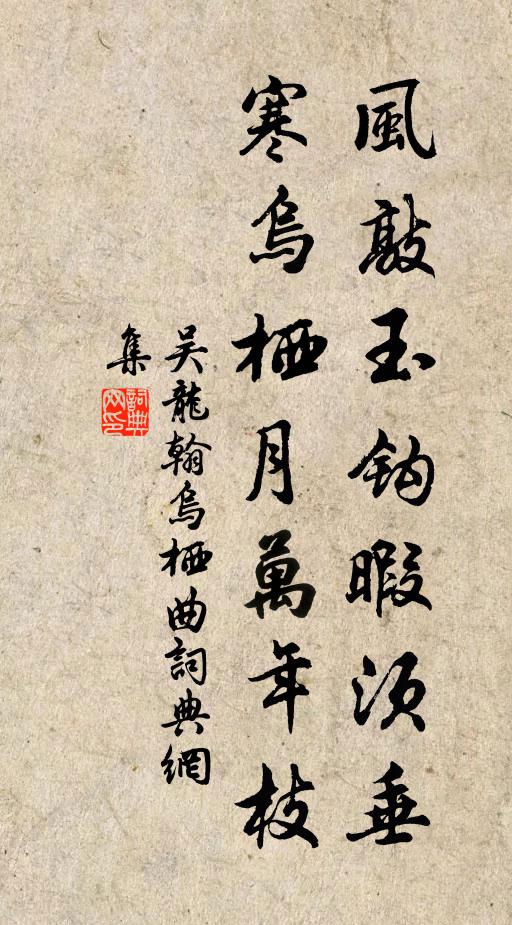 風敲玉鉤暇須垂
寒烏栖月萬年枝
吴龍翰烏栖曲詞典網
集
詞典網印